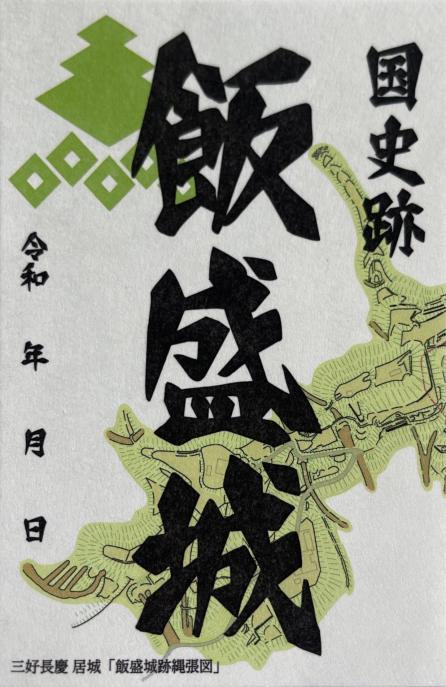 国史跡
飯盛城
令和 年 月 日
三好長慶 居城「飯盛城跡縄張図」